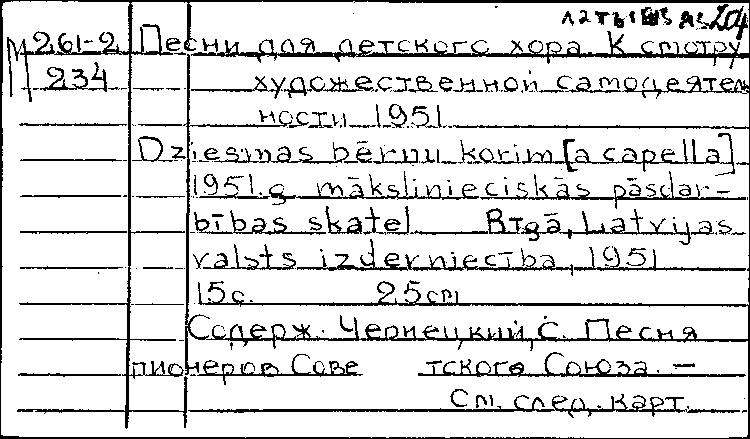 204
М 261-2 Песни для детского хора. К смотру
234 художественной самодеятель
ности 1951
Dziesmas bērnu korim [a capella]
1951.g mākslinieciskās pāsdar-
bības skatel Rīgā, Latvijas
valsts izderniecība, 1951
15с. 25cm
Содерж. Чернецкий, С. Песня
пионеров Сове тского Союза. —
См. след. карт.